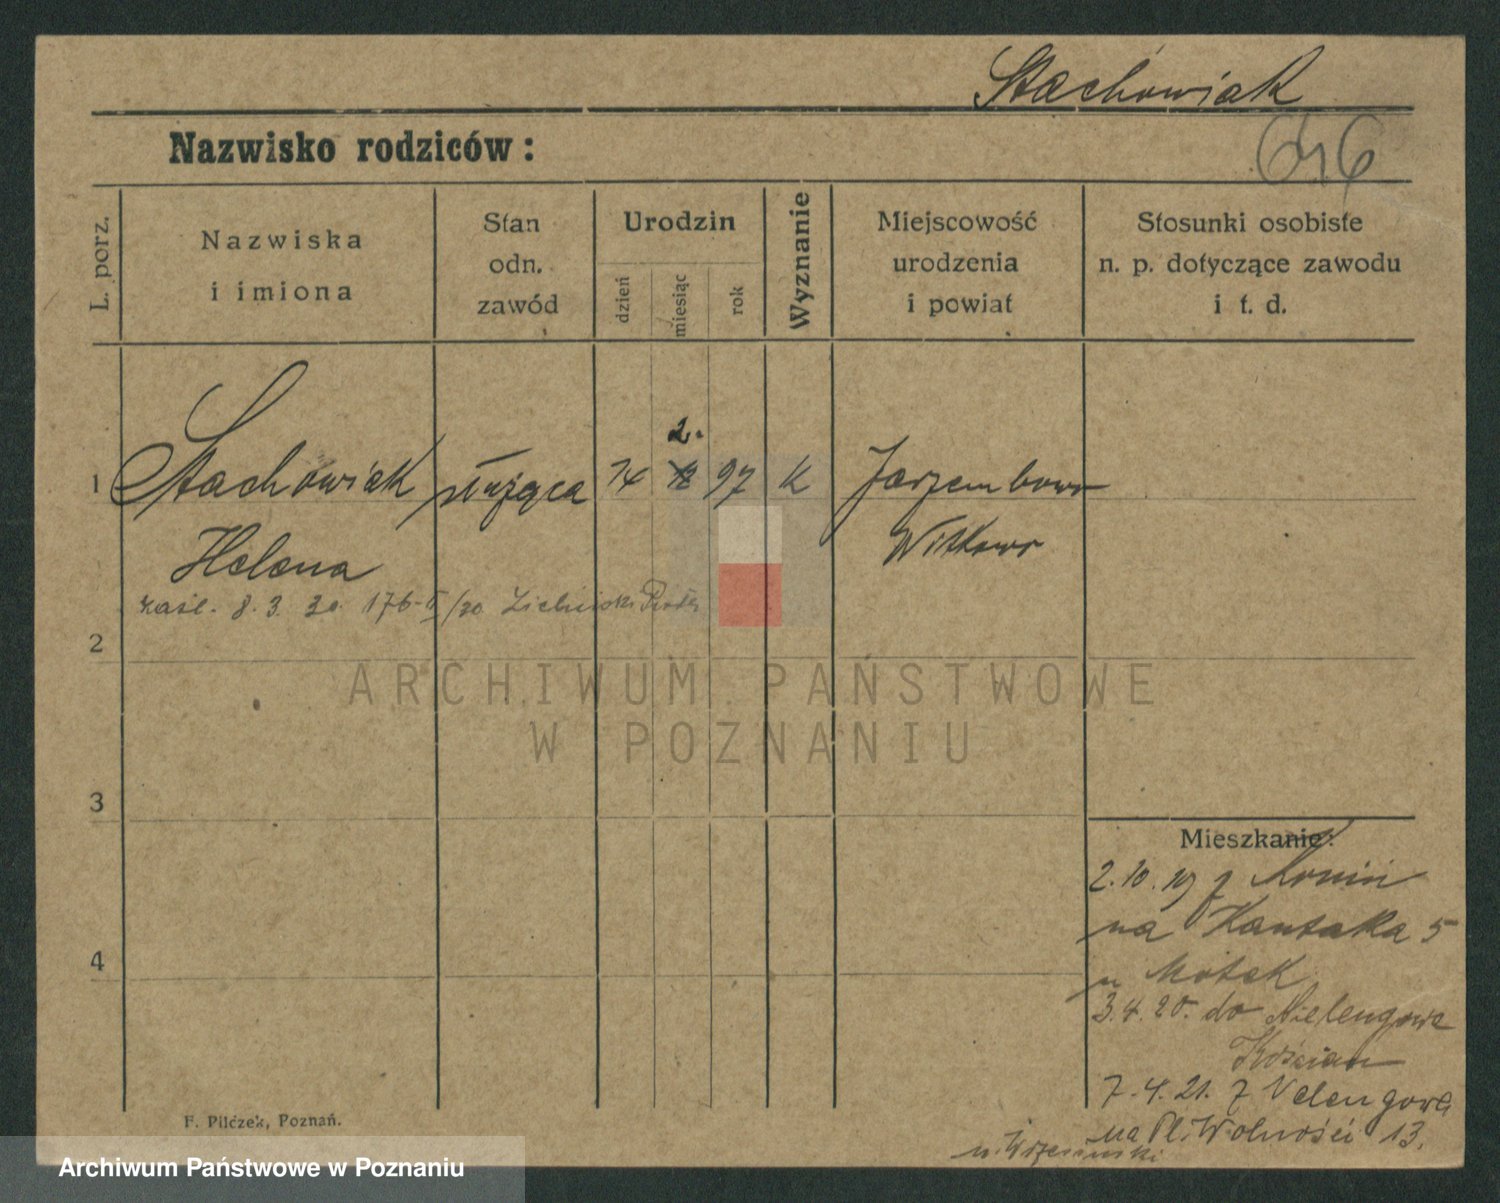 Stachowiak
Nazwisko rodziców:
L. porz.
Nazwiska
i imiona
Stan
odn.
zawód
Urodzin
dzień
miesiąc
rok
Wyznanie
Miejscowość
urodzenia
i powiat
Stosunki osobiste
n. p. dotyczące zawodu
i t. d.
2.
1 Stachowiak służąca 14 12 97 K Jarzembowo
Helena Witkowo
8. 3. 20 176
2
ARCHIWUM PAŃSTWOWE
W POZNANIU
3
Mieszkanie:
2.10.19 z Konin
na Kantaka 5
4
u Motek
3.4.20. do Nielengowa
Kościan
7.4.21. z Velengowa
na Pl. Wolności 13.
u. Wrzesinski
F. Pilczek, Poznań.
Archiwum Państwowe w Poznaniu